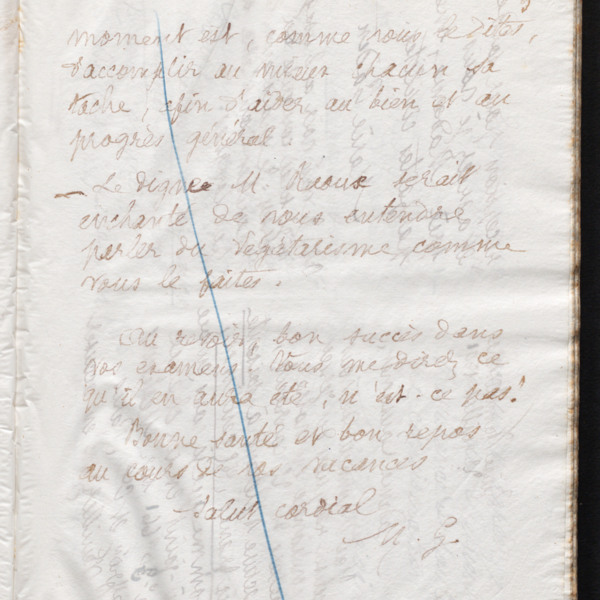 moment est, comme vous le dites,
d'accomplir au mieux chacun sa
tâche, afin d'aider au bien et au
progrès général.
Le digne M. Raoux serait
enchanté de vous entendre
parler du Végétarisme comme
vous le faites.
Au revoir, bon succès dans
vos examens. Vous me direz ce
qu'il en aura été, n'est-ce pas!
Bonne santé et bon repos
au cours de vos vacances
Salut cordial
M. G.